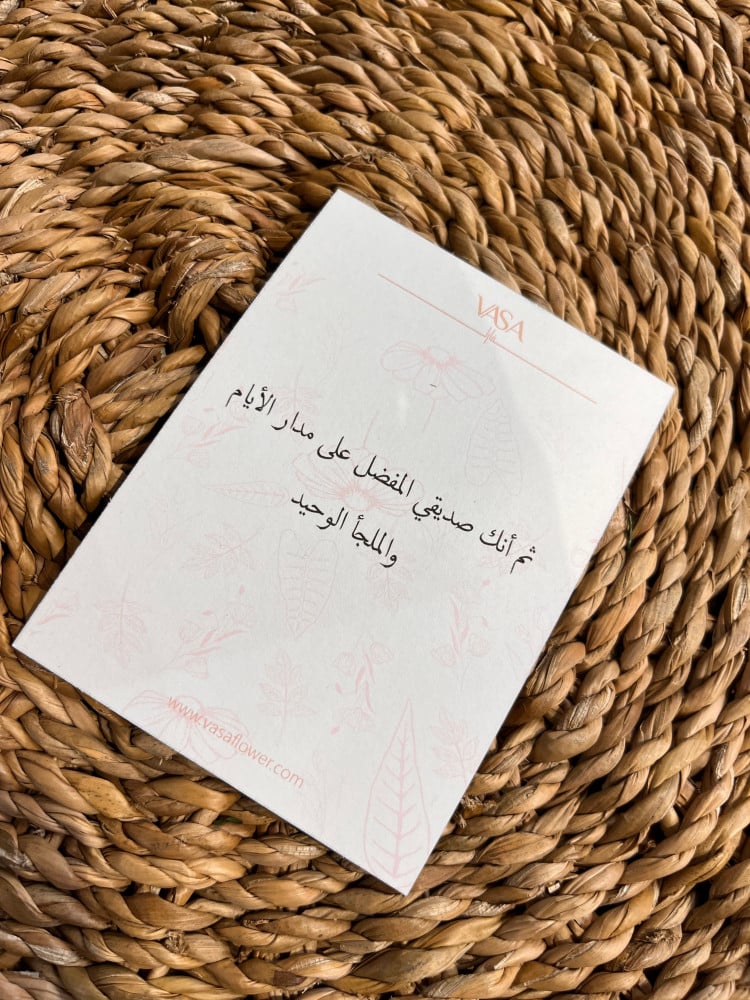 VASA
ثم أنك صديقي المفضل على مدار الأيام
والملجأ الوحيد
www.vasaflower.com